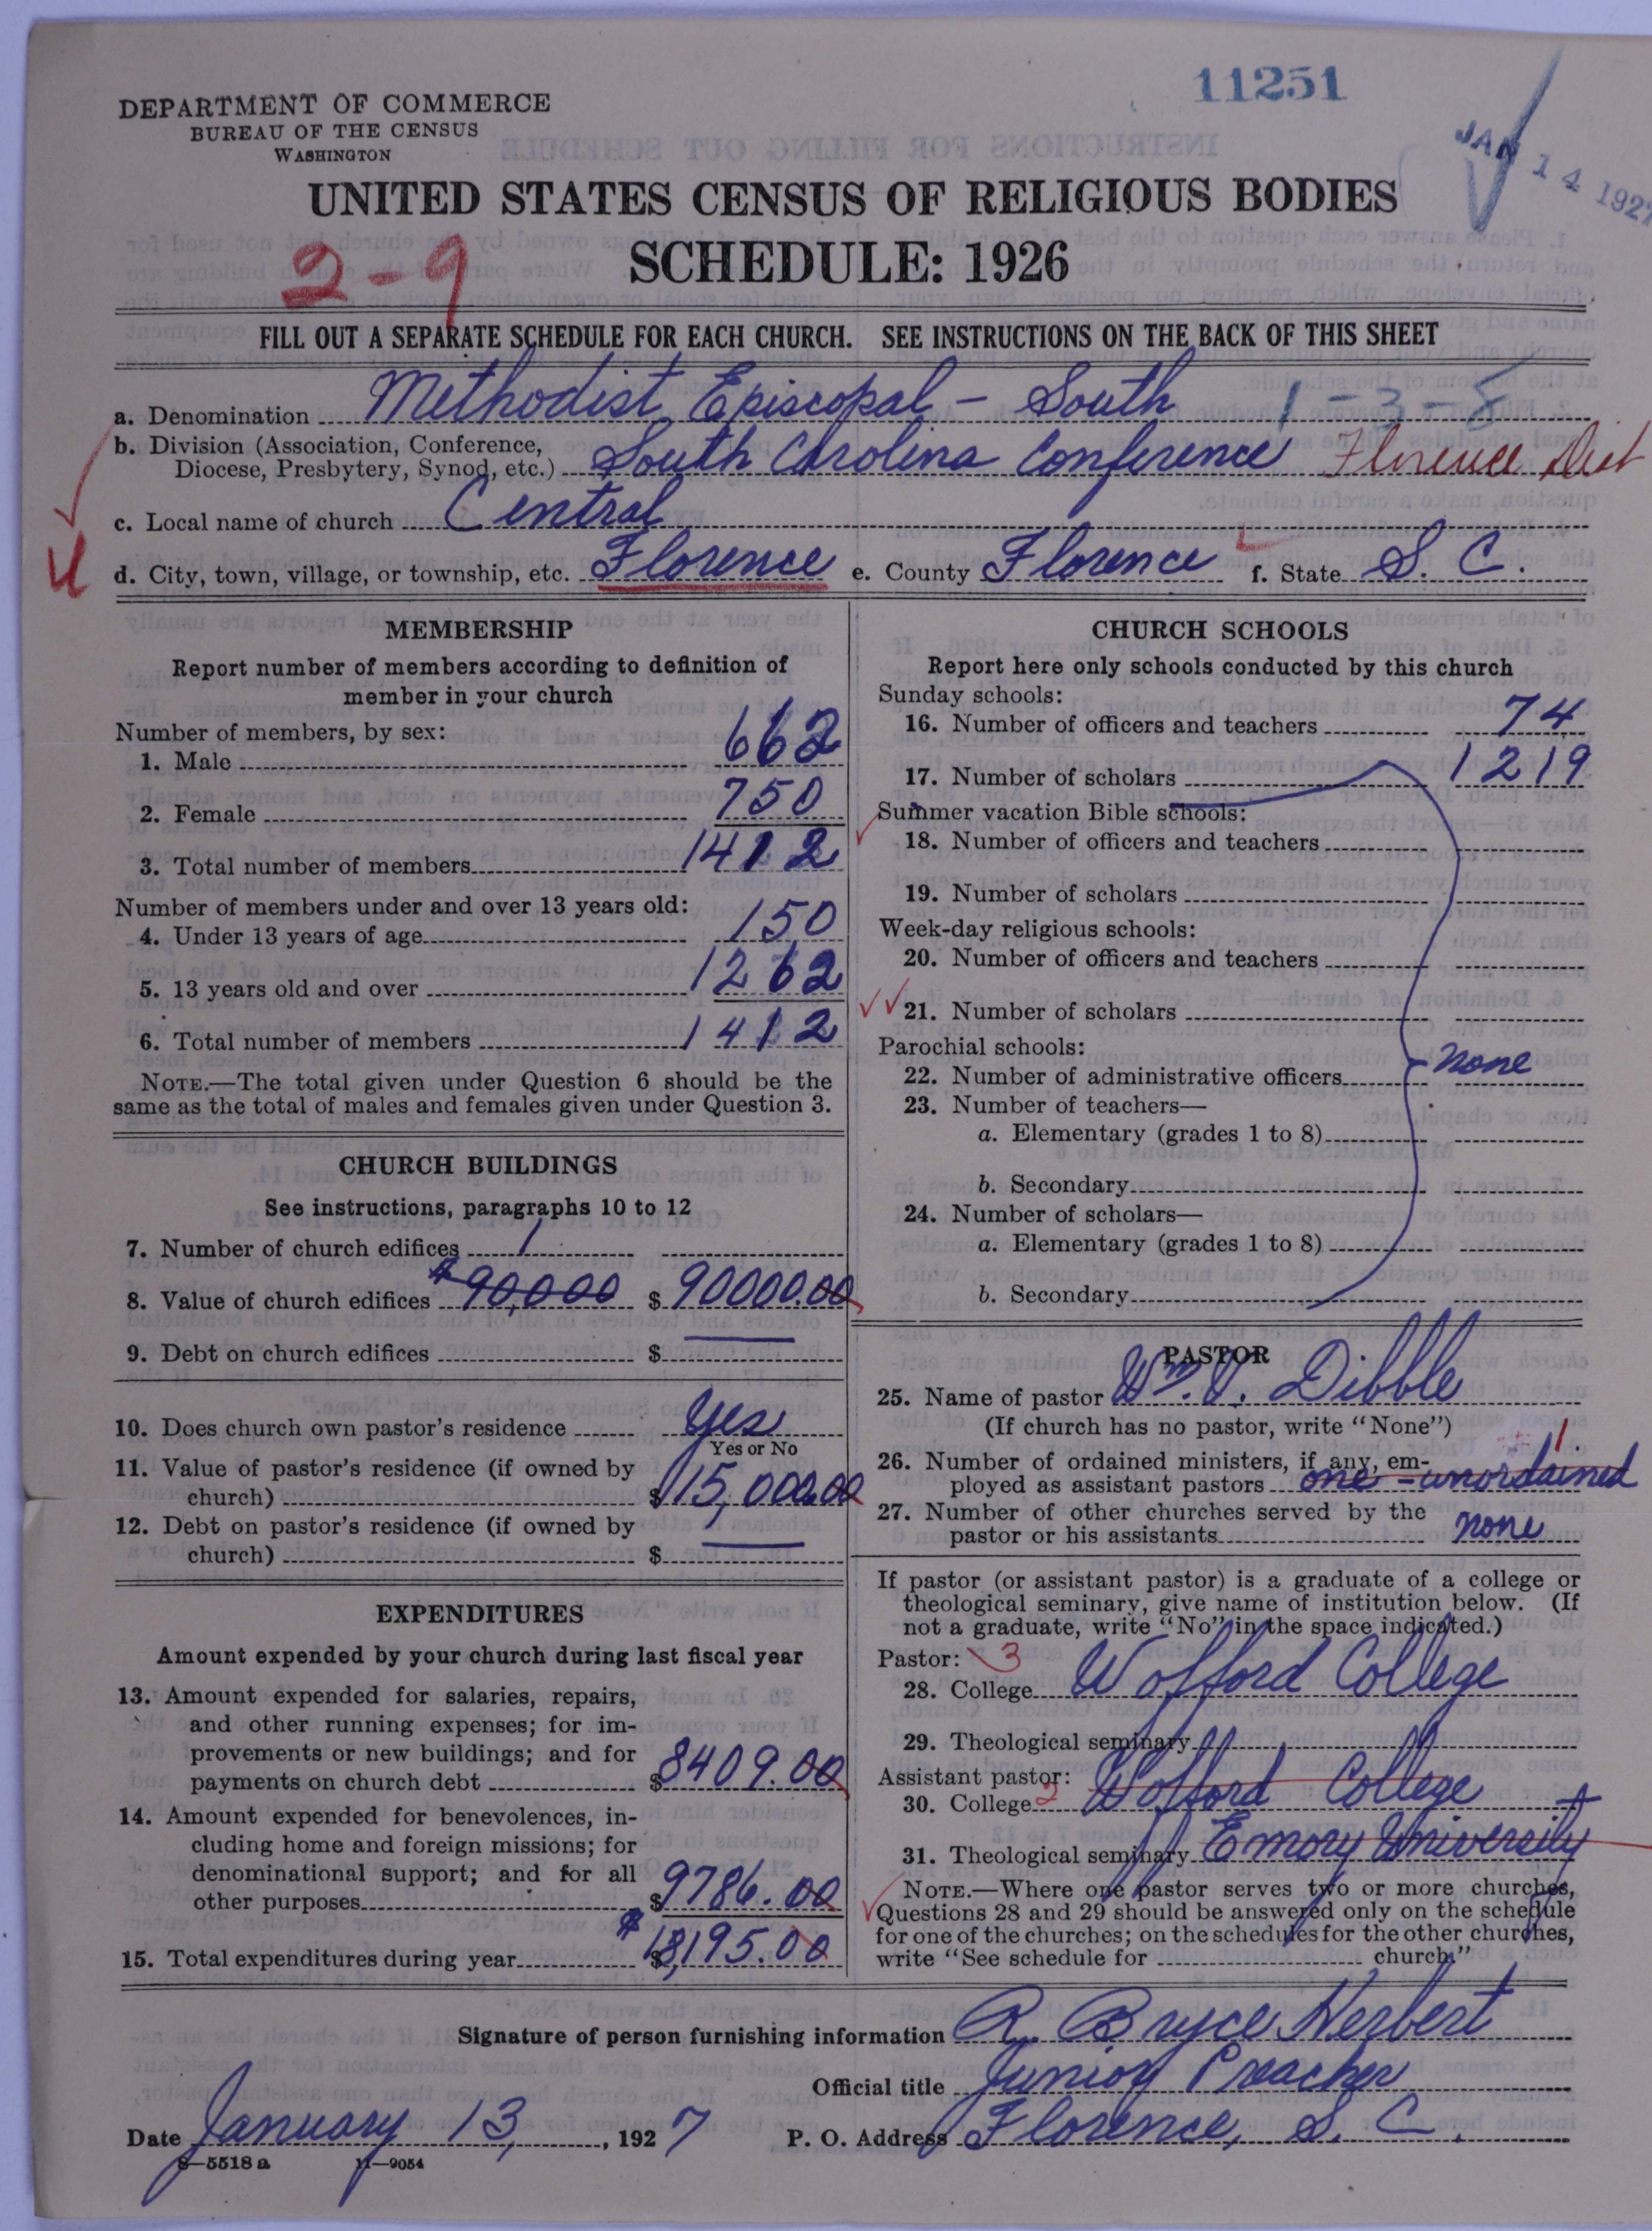 11251
JAN 14 1927
DEPARTMENT OF COMMERCE
BUREAU OF THE CENSUS
WASHINGTON
UNITED STATES CENSUS OF RELIGIOUS BODIES
SCHEDULE: 1926
2-9
FILL OUT A SEPARATE SCHEDULE FOR EACH CHURCH. SEE INSTRUCTIONS ON THE BACK OF THIS SHEET
a. Denomination Methodist Episcopal - South 1-3-8
b. Division (Association, Conference,
Diocese, Presbytery, Synod, etc.) South Carolina Conference Florence Dist
c. Local name of church Central
d. City, town, village, or township, etc. Florence e. County Florence f. State S. C.
MEMBERSHIP
Report number of members according to definition of
member in your church
Number of members, by sex:
1. Male 662
2. Female 750
3. Total number of members 1412
Number of members under and over 13 years old:
4. Under 13 years of age 150
5. 13 years old and over 1262
6. Total number of members 1412
NOTE.—The total given under Question 6 should be the
same as the total of males and females given under Question 3.
CHURCH BUILDINGS
See instructions, paragraphs 10 to 12
7. Number of church edifices 1
8. Value of church edifices $90,000 $ 90000.00
9. Debt on church edifices $
10. Does church own pastor's residence Yes
Yes or No
11. Value of pastor's residence (if owned by
church) $15,000.00
12. Debt on pastor's residence (if owned by
church) $
EXPENDITURES
Amount expended by your church during last fiscal year
13. Amount expended for salaries, repairs,
and other running expenses; for im-
provements or new buildings; and for
payments on church debt $8409.00
14. Amount expended for benevolences, in-
cluding home and foreign missions; for
denominational support; and for all
other purposes $9786.00
15. Total expenditures during year $ $18,195.00
CHURCH SCHOOLS
Report here only schools conducted by this church
Sunday schools:
16. Number of officers and teachers 74
17. Number of scholars 1219
Summer vacation Bible schools:
18. Number of officers and teachers
19. Number of scholars
Week-day religious schools:
20. Number of officers and teachers
21. Number of scholars
Parochial schools:
22. Number of administrative officers none
23. Number of teachers—
a. Elementary (grades 1 to 8)
b. Secondary
24. Number of scholars—
a. Elementary (grades 1 to 8)
b. Secondary
PASTOR
25. Name of pastor Wm. V. Dibble
(If church has no pastor, write "None")
26. Number of ordained ministers, if any, em-
ployed as assistant pastors one - unordained 1
27. Number of other churches served by the
pastor or his assistants none
If pastor (or assistant pastor) is a graduate of a college or
theological seminary, give name of institution below. (If
not a graduate, write "No" in the space indicated.)
Pastor: 3
28. College Wofford College
29. Theological seminary
Assistant pastor:
30. College 2 Wofford College +
31. Theological seminary Emory University
NOTE.—Where one pastor serves two or more churches,
Questions 28 and 29 should be answered only on the schedule
for one of the churches; on the schedules for the other churches,
write "See schedule for church."
Signature of person furnishing information R. Bryce Herbert
Official title Junior Preacher
Date January 13, 1927 P. O. Address Florence, S. C.
8—5518 a 11—9054